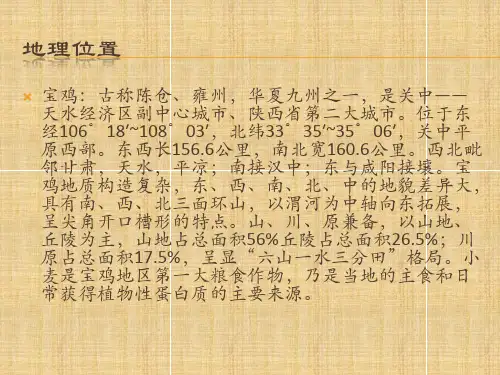 地理位置
宝鸡：古称陈仓、雍州，华夏九州之一，是关中——
天水经济区副中心城市、陕西省第二大城市。位于东
经106°18′~108°03′，北纬33°35′~35°06′，关中平
原西部。东西长156.6公里，南北宽160.6公里。西北毗
邻甘肃，天水，平凉；南接汉中；东与咸阳接壤。宝
鸡地质构造复杂，东、西、南、北、中的地貌差异大，
具有南、西、北三面环山，以渭河为中轴向东拓展，
呈尖角开口槽形的特点。山、川、原兼备，以山地、
丘陵为主，山地占总面积56%丘陵占总面积26.5%；川
原占总面积17.5%，呈显“六山一水三分田”格局。小
麦是宝鸡地区第一大粮食作物，乃是当地的主食和日
常获得植物性蛋白质的主要来源。